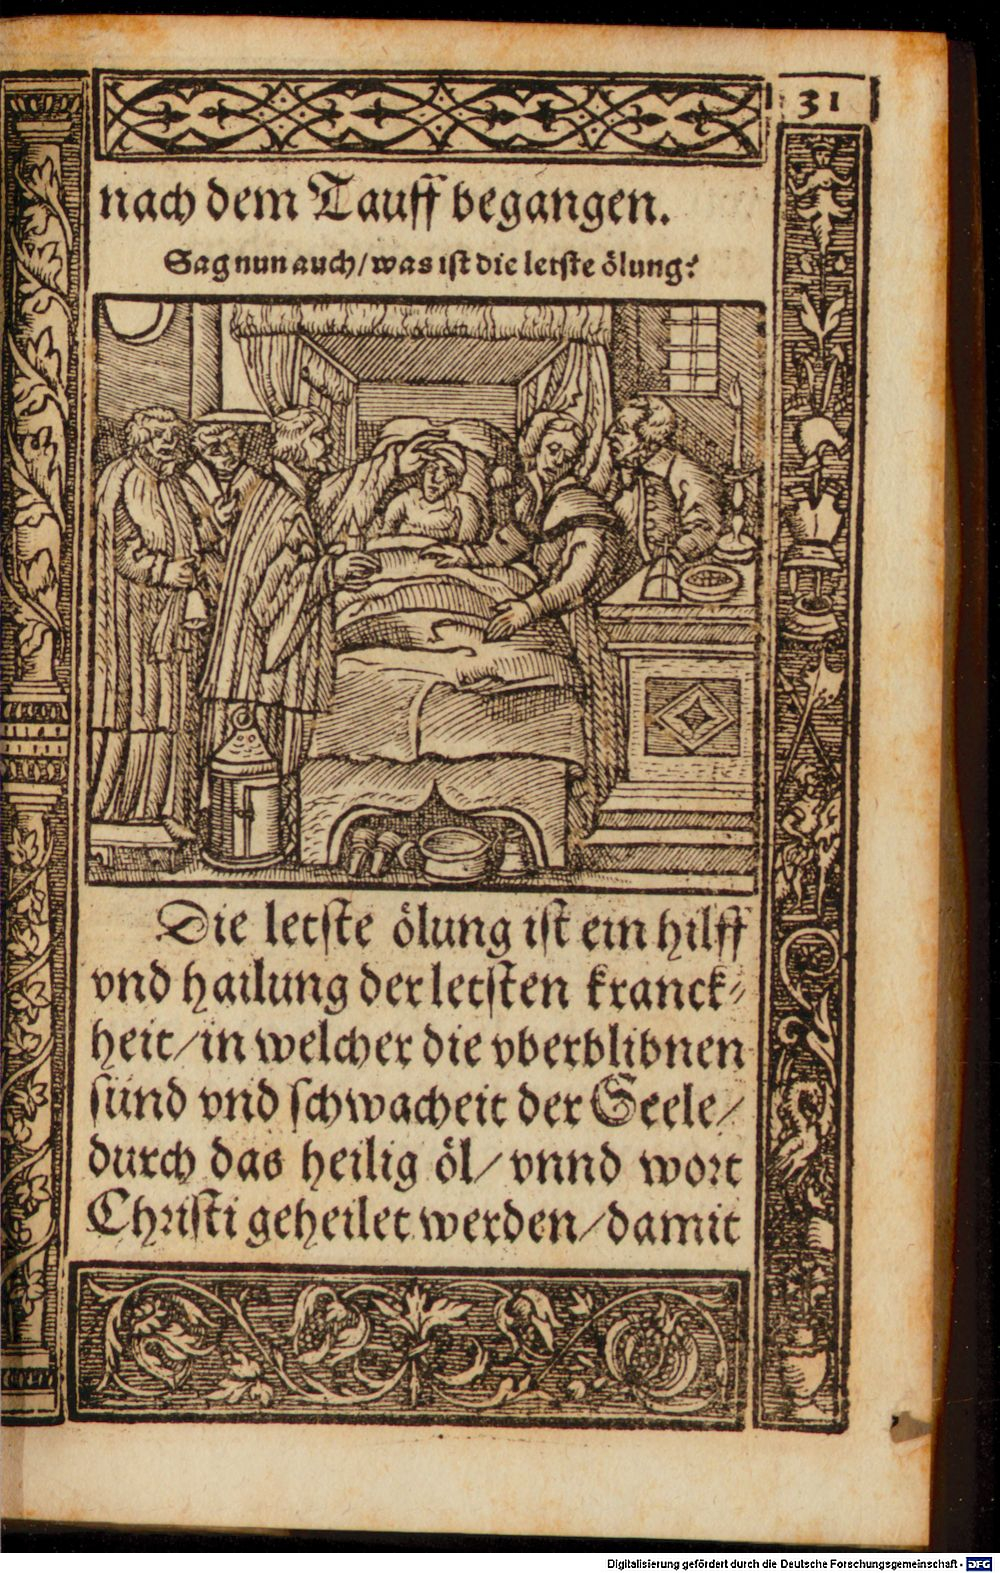 31
nach dem Tauff begangen.
Sag nun auch/ was ist die letste ölung?
Die letste ölung ist ein hilff
vnd hailung der letsten kranck⸗
heit/ in welcher die vberblibnen
sünd vnd schwacheit der Seele/
durch das heilig öl/ vnnd wort
Christi geheilet werden/ damit
Digitalisierung gefördert durch die Deutsche Forschungsgemeinschaft - DFG